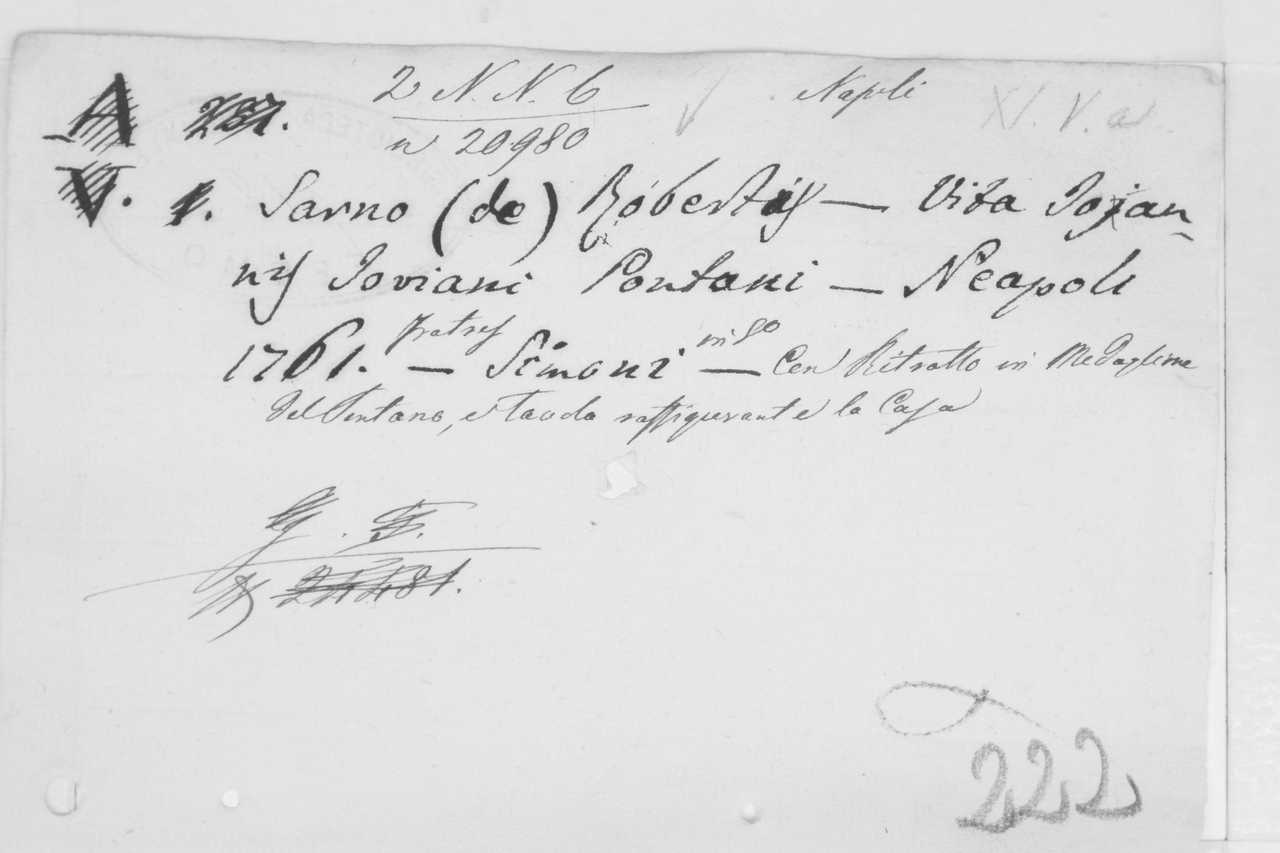 A 237. 2 N. N. 6 Napoli XI. V. a
n 20980
V. 1. Sarno (de) Robertus — Vita Joan
nis Joviani Pontani — Neapoli
1761. — fratres Simoni — in 8o Con Ritratto in Medaglione
del Pontano, e Tavola raffigurante la Casa
222